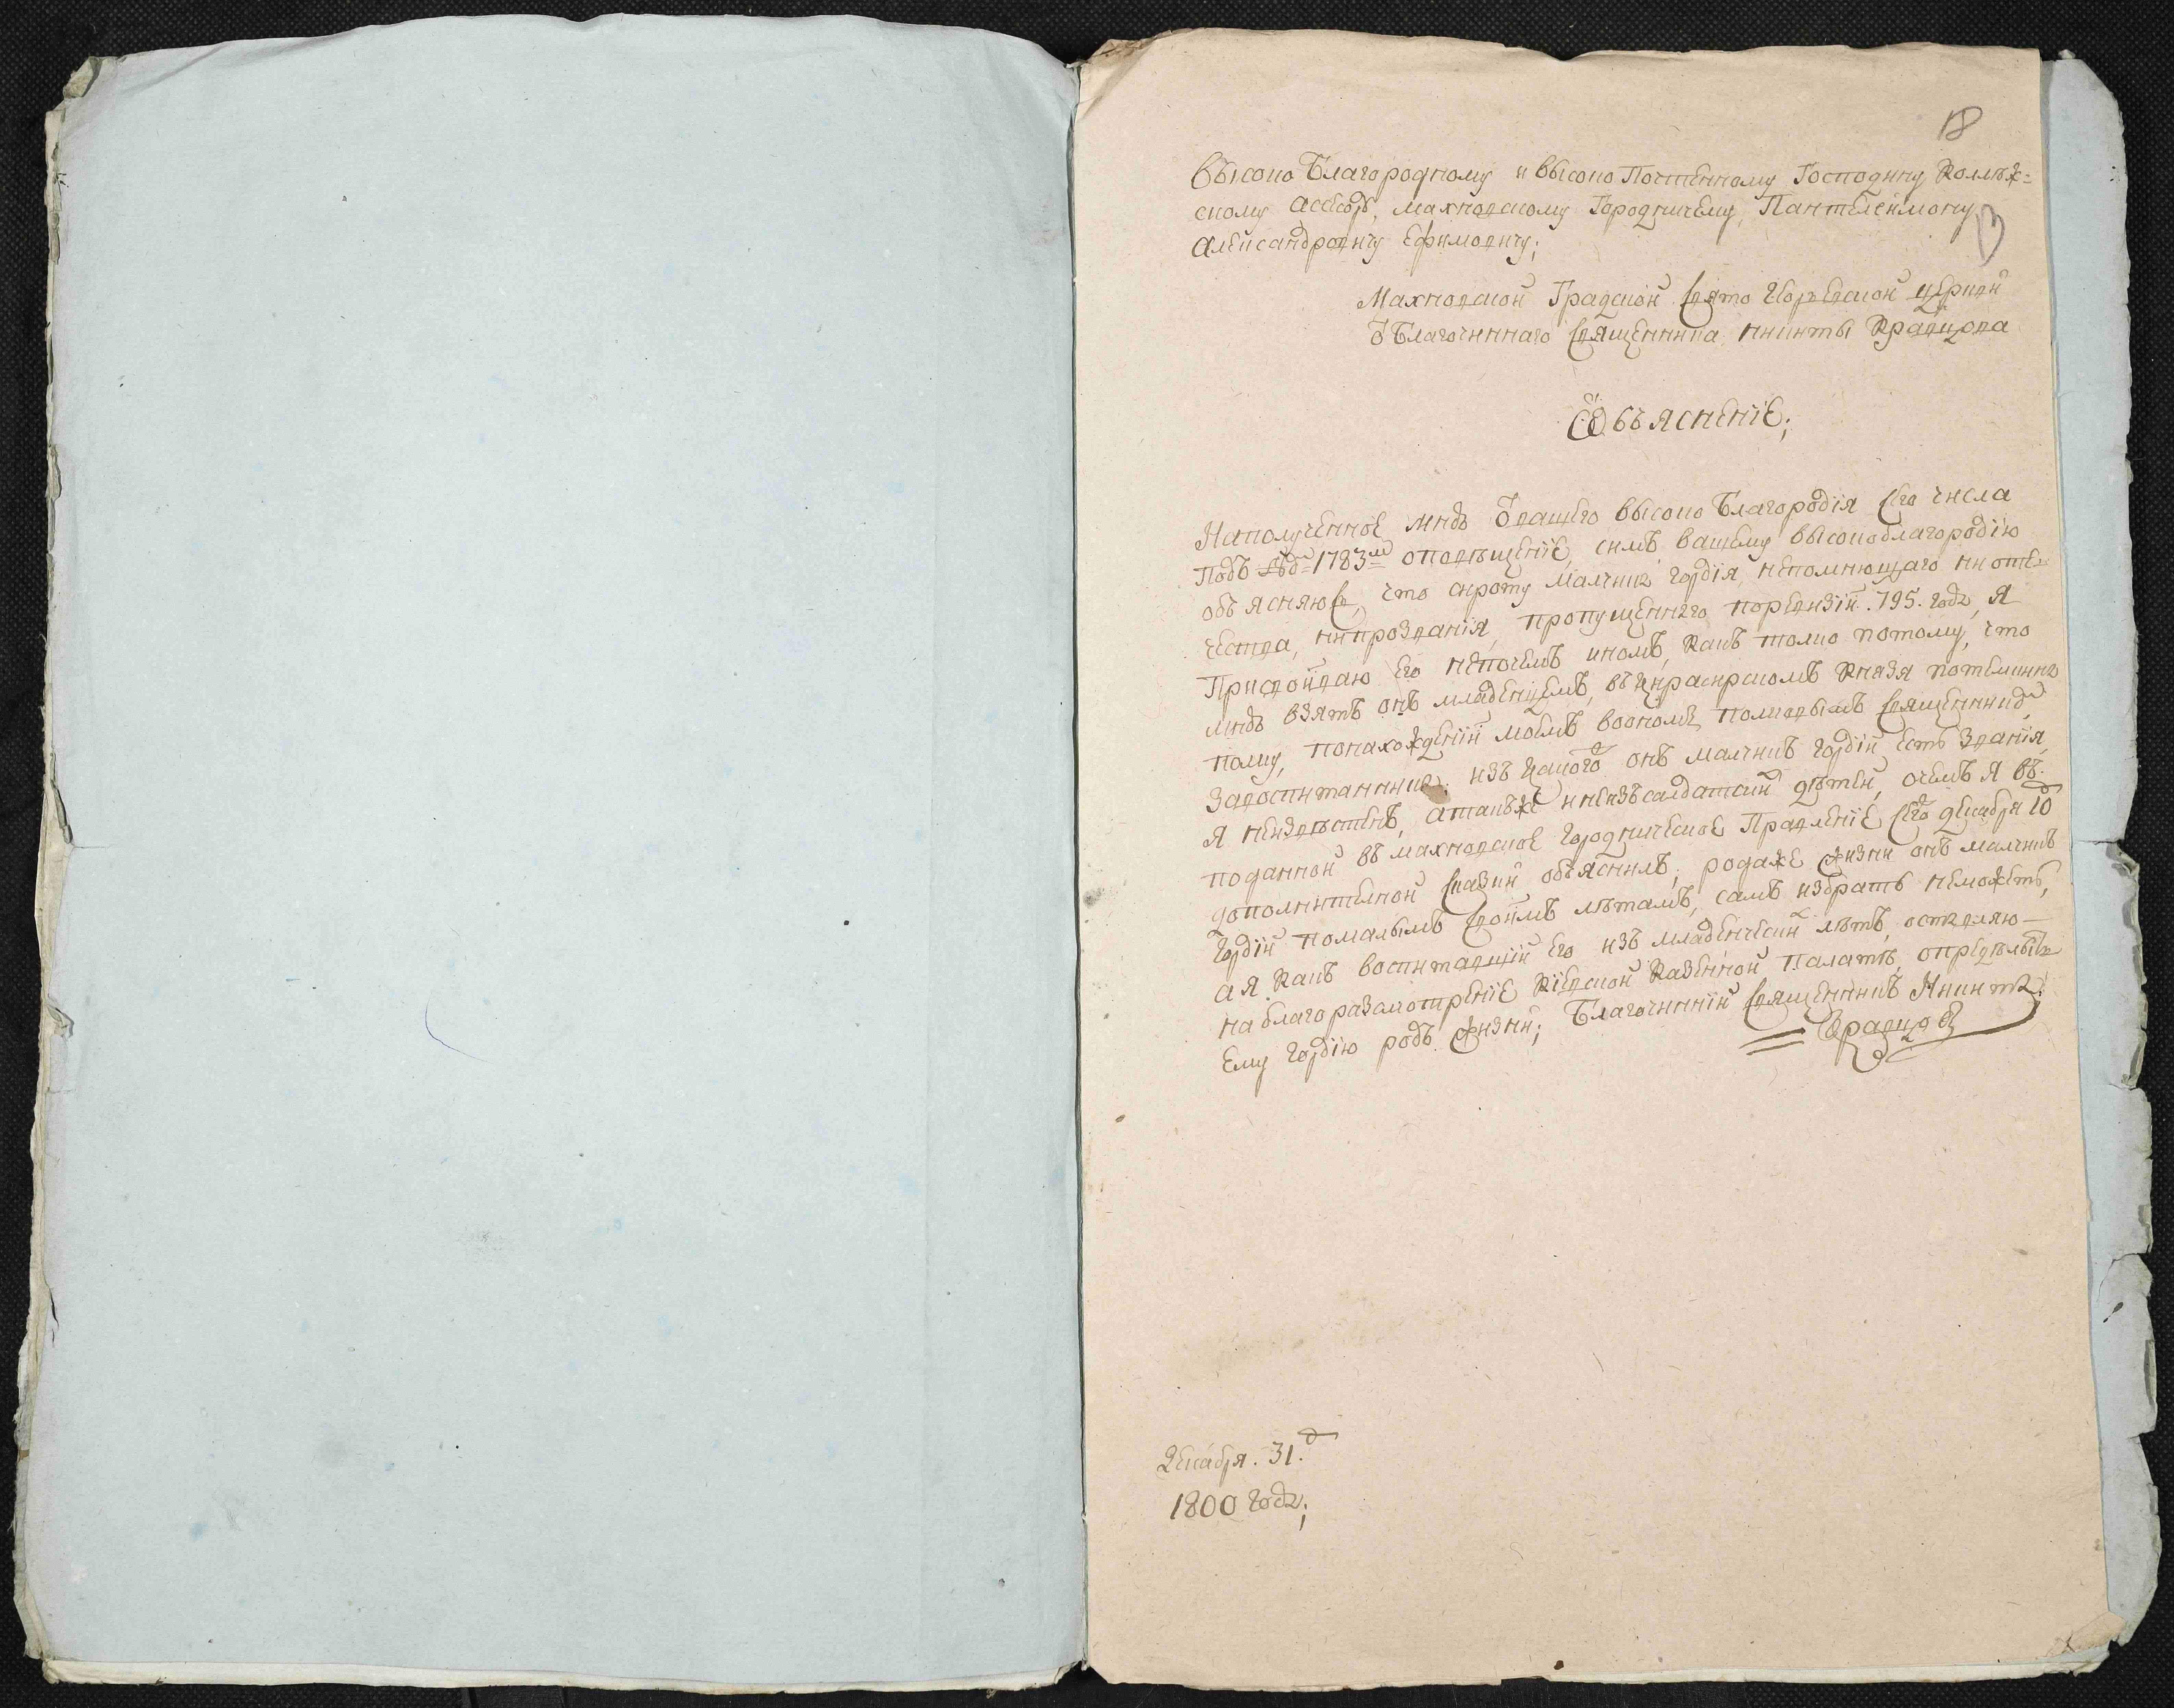 18
высоко Благородному и высоко Почтенному Господину Коллеж=
скому ассесору, махновскому Городничему, Пантелеймону
Александровичу Ефимовичу;
Махновской Градской Свято Георгевской церкви
Благочиннаго Священника никиты Кравцова
Объяснение;
Наполученное мною отвашего высоко Благородія сего числа
подъ 1783м оповещеніе, симъ вашему высокоблагородію
объясняюсь, что сироту малчика гордія, непомнющаго ни оте-
чества, ни прозванія, пропущеннаго поревизіи 795. года, я
Присвойваю его непочемъ иномъ, какъ толко потому, что
мною взятъ онъ младенцемъ, въ Князя потемкина
полку, понахожденіи моемъ воономъ полковымъ священникомъ,
завоспитанника. изъ какого онъ малчикъ гордій есть званія,
я неизвѣстенъ, атакъже и неизъ салдатскихъ дѣтей, очемъ я въ
поданной въ махновское Городническое Правленіе сего декабря 10
дополнителной сказки объяснилъ, родаже жизни онъ малчикъ
гордій помалымъ своимъ лѣтамъ, самъ избрать неможетъ,
а я какъ воспитавшій его изъ младенческихъ лѣтъ, оставляю—
на благоразсмотреніе Кіевской Казенной палатѣ, опредѣлить
ему гордію родъ жизни; Благочинній священникъ Никита
Кравцов
Декабря. 31.
1800 года;